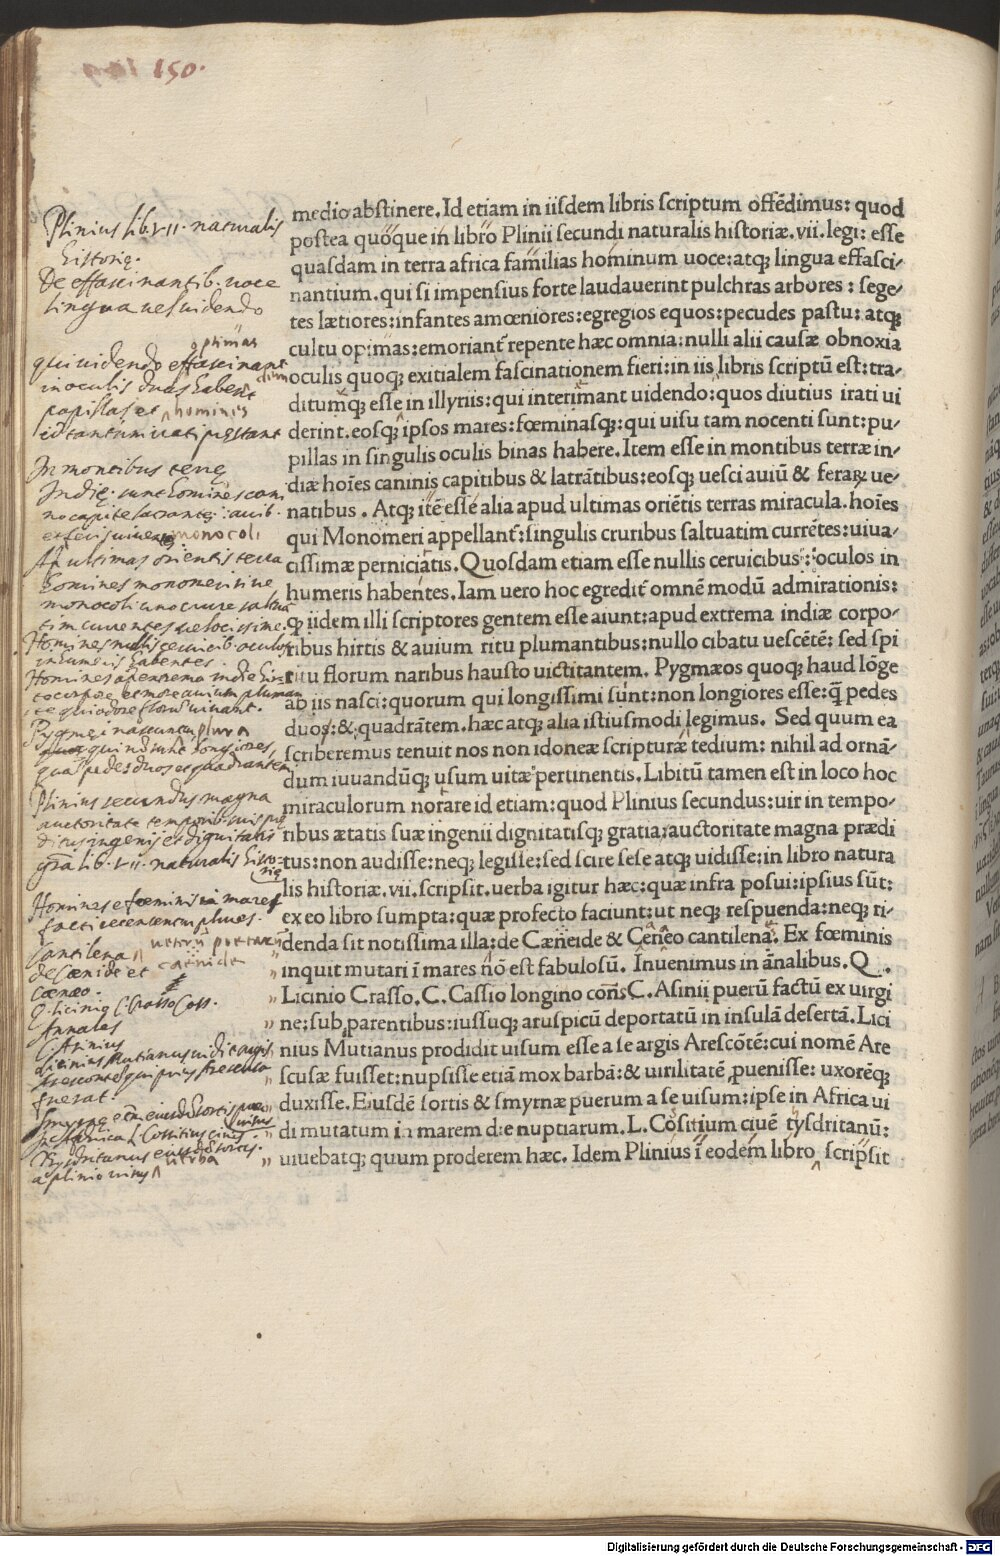 150.
medio abstinere. Id etiam in iisdem libris scriptum offēdimus: quod
postea quoque in libro Plinii secundi naturalis historiæ. vii. legi: esse
quasdam in terra africa familias hominum uoce: atq; lingua effasci-
nantium. qui si impensius forte laudauerint pulchras arbores: sege-
tes lætiores: infantes amœniores: egregios equos: pecudes pastu: atq;
cultu opimas: emoriant᷑ repente hæc omnia: nulli alii causæ obnoxia
oculis quoq; exitialem fascinationem fieri: in iis libris scriptū est: tra-
ditumq; esse in illyriis: qui interimant uidendo: quos diutius irati ui
derint. eosq; ipsos mares: fœminasq;: qui uisu tam nocenti sunt: pu-
pillas in singulis oculis binas habere. Item esse in montibus terræ in-
diæ hoīes caninis capitibus & latrātibus: eosq; uesci auiū & feraꝝ ue-
natibus. Atq; itē esse alia apud ultimas oriētis terras miracula. hoīes
qui Monomeri appellant᷑: singulis cruribus saltuatim currētes: uiua-
cissimæ perniciatis. Quosdam etiam esse nullis ceruicibus: oculos in
humeris habentes. Iam uero hoc egredit᷑ omnē modū admirationis:
ꝙ iidem illi scriptores gentem esse aiunt: apud extrema indiæ corpo-
ribus hirtis & auium ritu plumantibus: nullo cibatu uescētē: sed spi
ritu florum naribus hausto uictitantem. Pygmæos quoq; haud lōge
ab iis nasci: quorum qui longissimi sunt: non longiores esse: q̄ pedes
duos: & quadrātem. hæc atq; alia istiusmodi legimus. Sed quum ea
scriberemus tenuit nos non idoneæ scripturæ tedium: nihil ad ornā-
dum iuuandūq; usum uitæ pertinentis. Libitū tamen est in loco hoc
miraculorum notare id etiam: quod Plinius secundus: uir in tempo-
ribus ætatis suæ ingenii dignitatisq; gratia: auctoritate magna prædi
tus: non audisse: neq; legisse: sed scire sese atq; uidisse: in libro natura
lis historiæ. vii. scripsit. uerba igitur hæc: quæ infra posui: ipsius sūt:
ex eo libro sumpta: quæ profecto faciunt: ut neq; respuenda: neq; ri-
denda sit notissima illa: de Cæneide & Ceneo cantilena. Ex fœminis
inquit mutari ī mares nō est fabulosū. Inuenimus in ānalibus. Q.
Licinio Crasso. C. Cassio longino coñs C. Asinii puerū factū ex uirgi
ne: sub parentibus: iussuq; aruspicū deportatū in insulā desertā. Lici
nius Mutianus prodidit uisum esse a se argis Arescōtē: cui nomē Are
scusæ fuisset: nupsisse etiā mox barbā: & uirilitatē ꝓuenisse: uxorēq;
duxisse. Eiusdē sortis & smyrnæ puerum a se uisum: ipse in Africa ui
di mutatum in marem die nuptiarum. L. Cositium ciuē tysdritanū:
uiuebatq; quum proderem hæc. Idem Plinius ī eodem libro scripsit
Plinius lib. vii. naturalis
historię.
De effascinantib. uoce
lingua uel uidendo
optimas
qui uidendo effascinant
in oculis duas habent
papillas et hominis
In montibus terrę
Indię sunt homines cani
no capite latrantes
monocoli
Ap ultimas orientis terra
homines monomeri siue
monocoli uno crure saltua
tim currentes uelocissime.
Homines nullis ceruicib. oculos
in humeris habentes.
Plinius secundus magna
auctoritate temporib. suis pre
ditus ingenii et dignitatis
gr̄a lib. vii. naturalis histo-
rię
Homines ex fœminis in mares
Cantilena
de Cænide et
Cæneo.
Q. Licinio C. Crasso Coss.
Annales
C. Asinius
Licinius Mutianus uidit argis
fuerat.
a plinio uisus
Digitalisierung gefördert durch die Deutsche Forschungsgemeinschaft - DFG